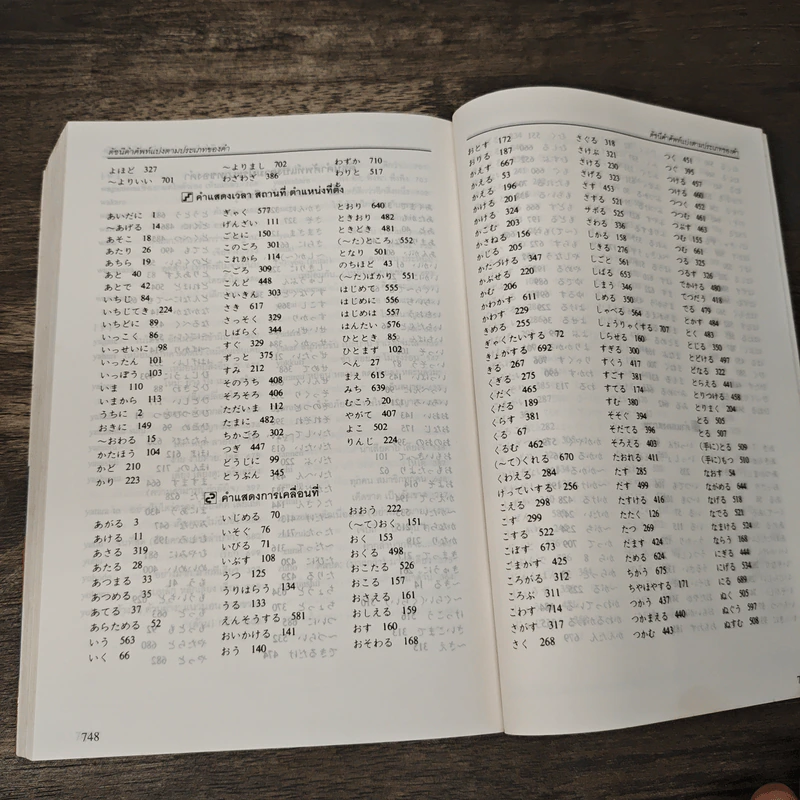 ดัชนีคำศัพท์แบ่งตามประเภทของคำ
よほど 327
～よりいい 701
～よりまし 702
わざわざ 386
わずか 710
わりと 517
คำแสดงเวลา สถานที่ ตำแหน่งที่ตั้ง
あいだに 1
～あげる 14
あそこ 18
あたり 26
あちら 19
あと 40
あとで 42
いちじ 84
いちじてき 224
いちどに 89
いっこく 86
いっせいに 98
いったん 101
いっぽう 103
いま 110
いまから 113
うちに 2
おきに 149
～おわる 15
かたほう 104
かど 210
かり 223
ぎゃく 577
げんざい 111
ごとに 150
このごろ 301
これから 114
～ごろ 309
こんど 448
さいきん 303
さき 617
さっそく 329
しばらく 344
すぐ 329
ずっと 375
すみ 212
そのうち 408
そろそろ 406
ただいま 112
たまに 482
ちかごろ 302
つぎ 447
どうじに 99
とうぶん 345
とおり 640
ときおり 482
ときどき 481
(～た)ところ 552
となり 501
のちほど 43
(～た)ばかり 551
はじめて 555
はじめに 556
はじめは 557
はんたい 576
ひととき 85
ひとまず 102
へん 27
まえ 615
みち 639
むこう 20
やがて 407
よこ 502
りんじ 224
คำแสดงการเคลื่อนที่
あがる 3
あける 11
あさる 319
あたる 28
あつまる 33
あつめる 35
あてる 37
あらためる 52
いう 563
いく 66
いじめる 70
いそぐ 76
いびる 71
いぶす 108
うつ 125
うりはらう 134
うる 133
えんそうする 581
おいかける 141
おう 140
おおう 222
(～て)おく 151
おく 153
おくる 498
おこたる 526
おこる 157
おさえる 161
おしえる 159
おす 160
おそわる 168
748
ดัชนีคำศัพท์แบ่งตามประเภทของคำ
おとす 172
おりる 187
かえす 667
かえる 53
かえる 196
かける 201
かける 324
かこむ 203
かさねる 156
かじる 205
かたづける 347
かぶせる 220
かむ 206
かわかす 611
かわす 229
きめる 255
ぎゃくたいする 72
きょかする 692
きる 267
くぎる 275
くだく 465
くだる 189
くらす 381
くる 67
くるむ 462
(～て)くれる 670
くわえる 284
けっていする 256
こえる 298
こす 299
こする 522
こぼす 673
ごまかす 425
ころがる 312
ころぶ 311
こわす 714
さがす 317
さく 268
さぐる 318
さけぶ 321
さける 230
さげる 323
さす 453
さする 521
サボる 525
さわる 336
しかる 158
しきる 276
しごと 561
しばる 653
しまう 346
しめる 350
しゃべる 564
しょうりゃくする 707
しらせる 160
すぎる 300
すくう 417
すごす 381
すてる 174
すむ 380
そそぐ 394
そだてる 396
そろえる 403
たおれる 411
たす 285
だす 499
たすける 416
たたく 126
たつ 269
だます 424
ためる 624
ちかう 675
ちやほやする 171
つかう 437
つかまえる 440
つかむ 443
つぐ 451
つぐ 395
つける 457
つける 463
つつく
つつむ 461
つぶす 463
つむ 155
つむ 661
つる 325
つるす 326
でかける 480
てつだう 418
でる 479
とかす 484
とく 483
とじる 350
とどける 497
どなる 322
とらえる 441
とりつける 458
とりまく 204
とる 505
とる 507
(手に)とる 509
(手に)もつ 510
なおす 54
ながめる 644
なげる 518
なでる 521
なまける 524
ならう 168
にぎる 444
にげる 534
にる 689
ぬく 505
ぬぐう 597
ぬすむ 508